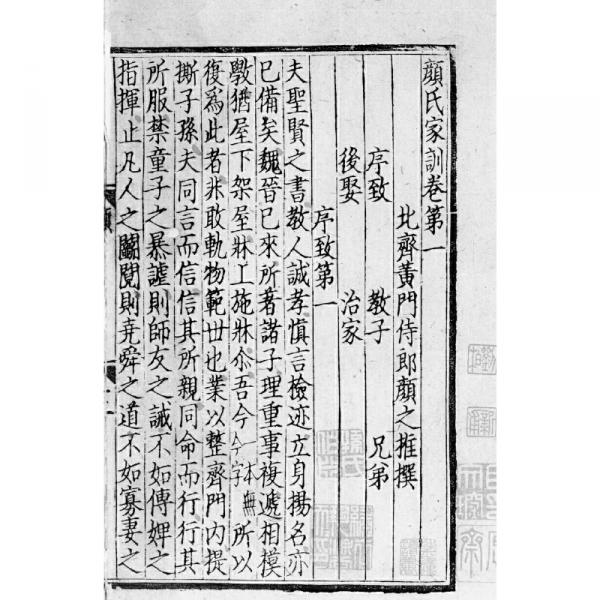 顔氏家訓卷第一
北齊黃門侍郎顔之推撰
序致 教子 兄弟
後娶 治家
序致第一
夫聖賢之書教人誠孝慎言檢迹立身揚名亦
已備矣魏晉已來所著諸子理重事複遞相模
斆猶屋下架屋牀上施牀尒吾今今字本無所以
復爲此者非敢軌物範世也業以整齊門內提
撕子孫夫同言而信信其所親同命而行行其
所服禁童子之暴謔則師友之誡不如傅婢之
指揮止凡人之鬭䦧則堯舜之道不如寡妻之